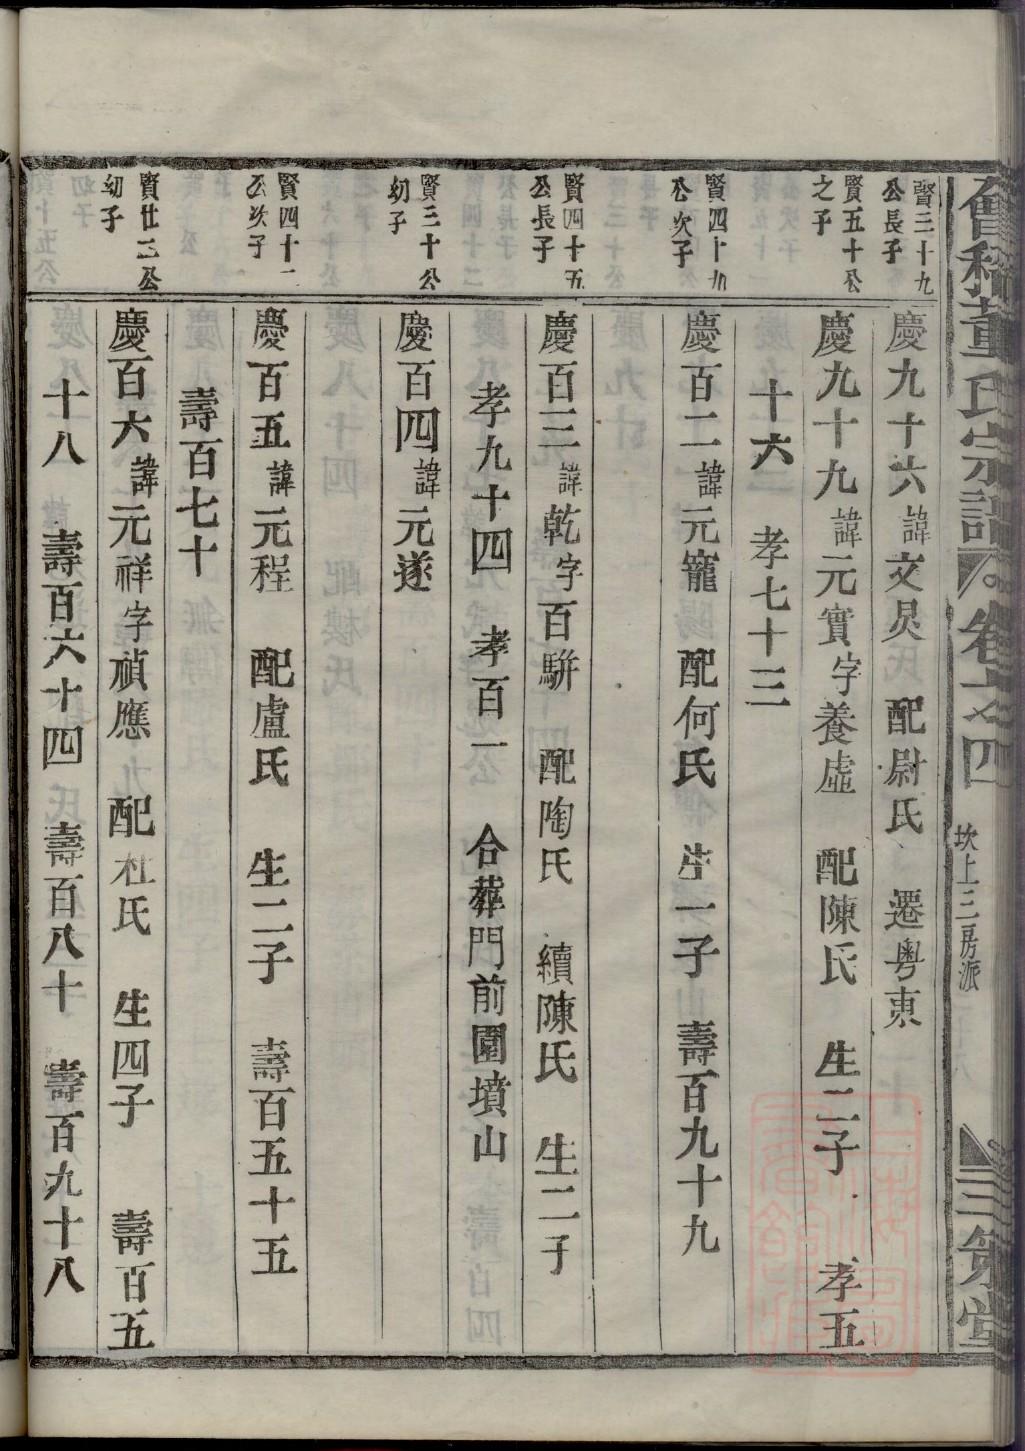 會稽董氏宗譜
卷之四
坎上三房派
三策堂
賢三十九
公長子
慶九十六諱文炅 配尉氏 遷粵東
賢五十公
之子
慶九十九諱元實字養虛 配陳氏 生二子 孝五
十六 孝七十三
賢四十九
公次子
慶百二諱元寵 配何氏 生一子 壽百九十九
賢四十五
公長子
慶百三諱乾字百駢 配陶氏 續陳氏 生二子
孝九十四 孝百一 合葬門前園墳山
賢三十公
幼子
慶百四諱元遂
賢四十二
公次子
慶百五諱元程 配盧氏 生二子 壽百五十五
壽百七十
賢廿三公
幼子
慶百六諱元祥字禎應 配杜氏 生四子 壽百五
十八 壽百六十四 壽百八十 壽百九十八